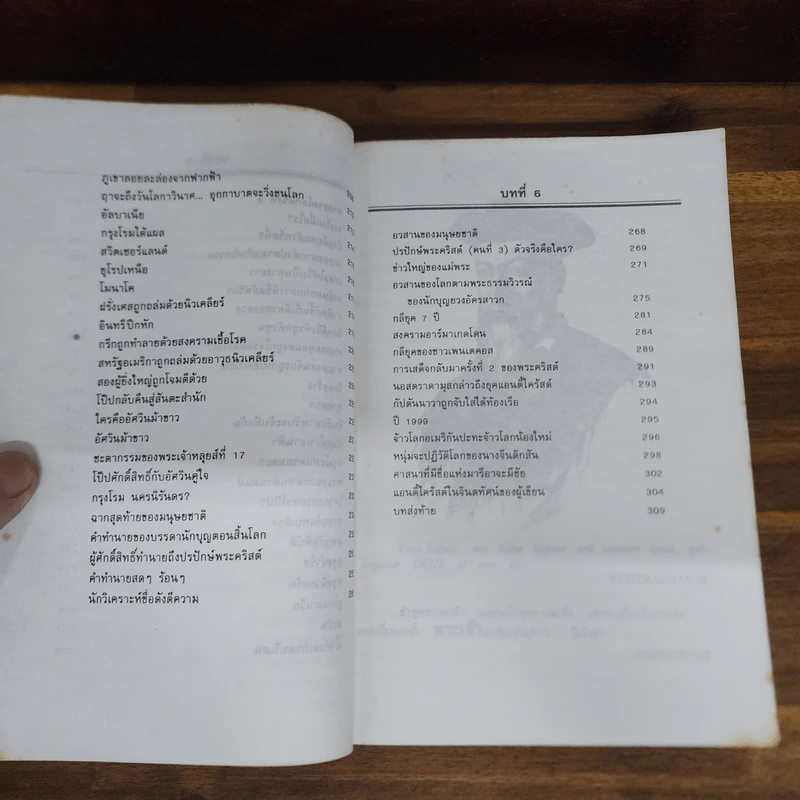 ภูเขาลอยละล่องจากฟากฟ้า
ฤาจะถึงวันโลกาวินาศ... อุกกาบาตจะวิ่งชนโลก
อัลบาเนีย
กรุงโรมได้แผล
สวิตเซอร์แลนด์
ยุโรปเหนือ
โมนาโค
ฝรั่งเศสถูกถล่มด้วยนิวเคลียร์
อินทรีปีกหัก
กรีกถูกทำลายด้วยสงครามเชื้อโรค
สหรัฐอเมริกาถูกถล่มด้วยอาวุธนิวเคลียร์
สองผู้ยิ่งใหญ่ถูกโจมตีด้วย
โป๊ปกลับคืนสู่สันตะสำนัก
ใครคืออัศวินม้าขาว
อัศวินม้าขาว
ชะตากรรมของพระเจ้าหลุยส์ที่ 17
โป๊ปศักดิ์สิทธิ์กับอัศวินคู่ใจ
กรุงโรม นครนิรันดร?
ฉากสุดท้ายของมนุษยชาติ
คำทำนายของบรรดานักบุญตอนสิ้นโลก
ผู้ศักดิ์สิทธิ์ทำนายถึงปรปักษ์พระคริสต์
คำทำนายสดๆ ร้อนๆ
นักวิเคราะห์ชื่อดังตีความ
บทที่ 6
อวสานของมนุษยชาติ 268
ปรปักษ์พระคริสต์ (คนที่ 3) ตัวจริงคือใคร? 269
ข่าวใหญ่ของแม่พระ 271
อวสานของโลกตามพระธรรมวิวรณ์
ของนักบุญยวงอัครสาวก 275
กลียุค 7 ปี 281
สงครามอาร์มาเกดโดน 284
กลียุคของชาวเพนเตคอส 289
การเสด็จกลับมาครั้งที่ 2 ของพระคริสต์ 291
นอสตราดามุสกล่าวถึงยุคแอนตี้ไครัสต์ 293
กัปตันนาวาถูกจับใส่ใต้ท้องเรือ 294
ปี 1999 295
จ้าวโลกอเมริกันปะทะจ้าวโลกน้องใหม่ 296
หนุ่มจะปฏิวัติโลกของนางจีนดิกสัน 298
ศาสนาที่มีชื่อแห่งมารีอาจะมีชัย 302
แอนตี้ไครัสต์ในจินตทัศน์ของผู้เขียน 304
บทส่งท้าย 309